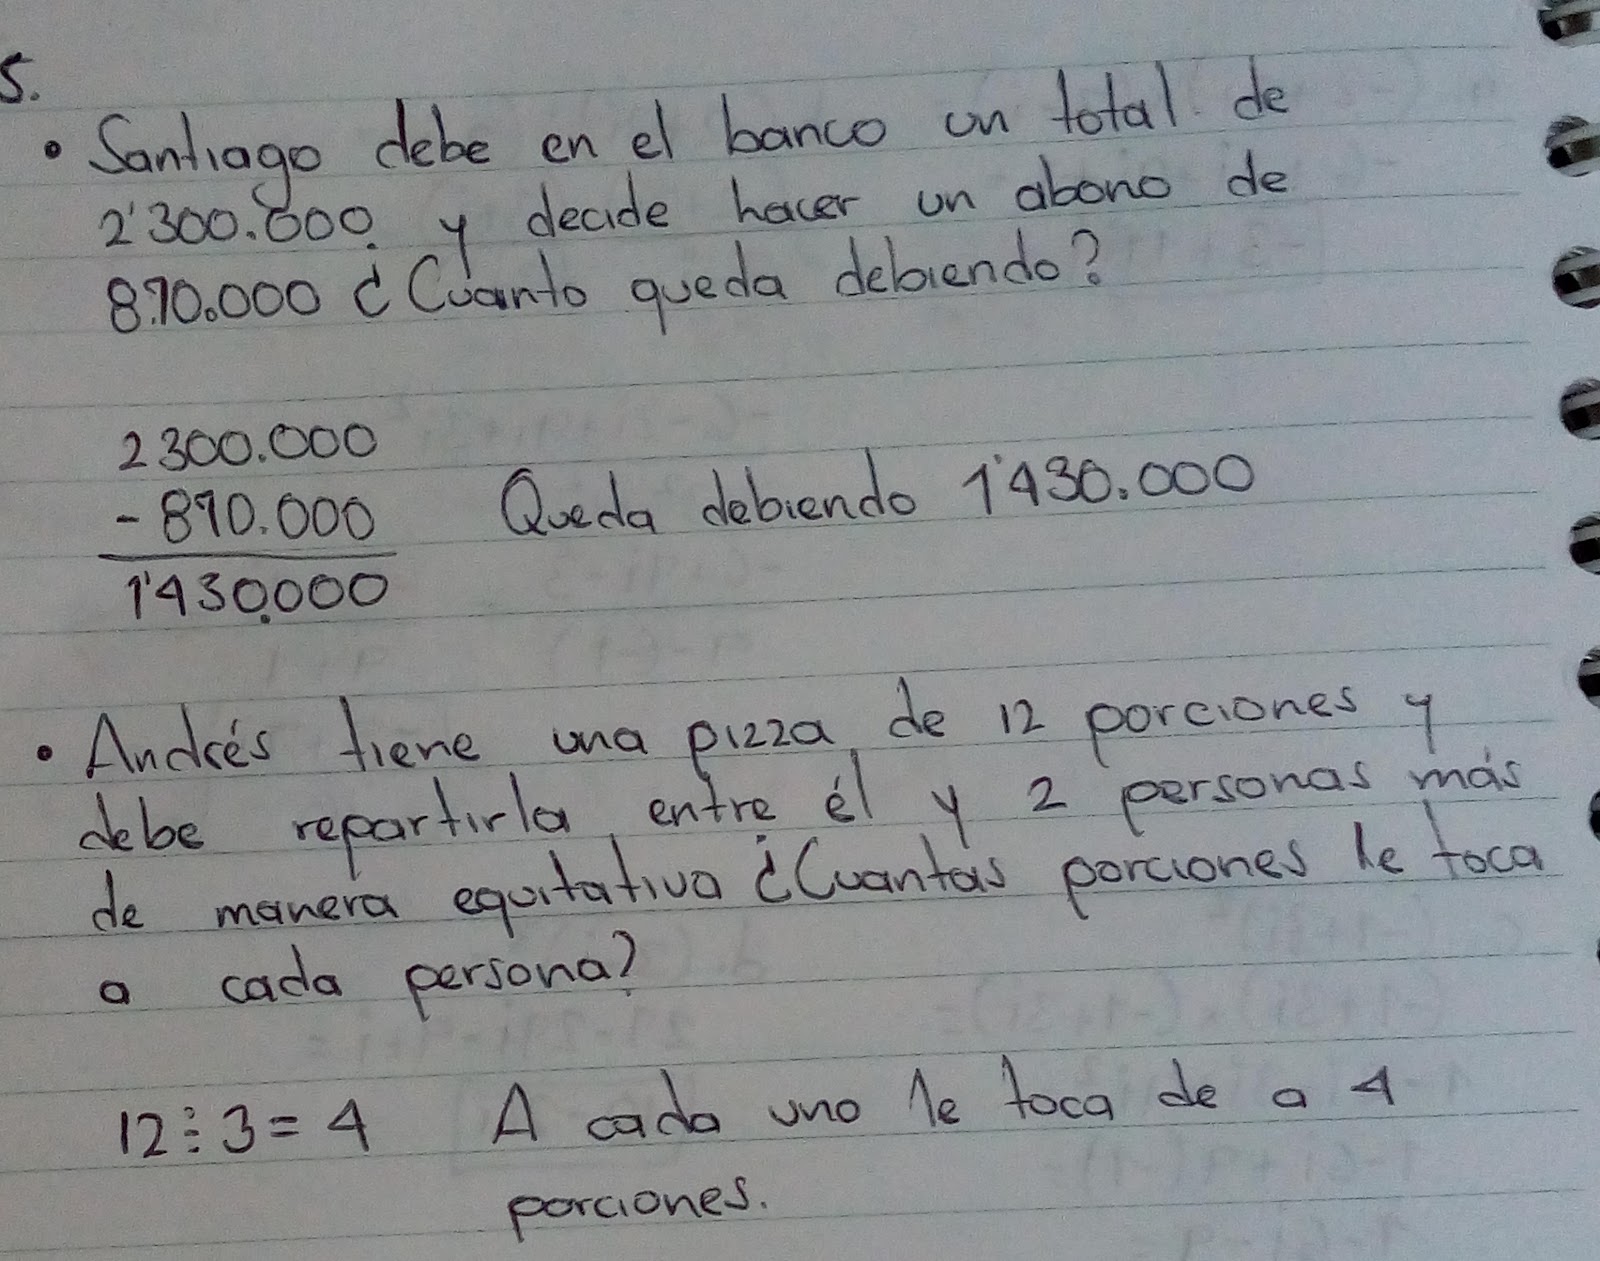 5.
• Santiago debe en el banco un total de
2'300.000 y decide hacer un abono de
870.000 ¿Cuanto queda debiendo?
2300.000
- 870.000
1'430.000
Queda debiendo 1'430.000
• Andrés tiene una pizza de 12 porciones y
debe repartirla entre él y 2 personas más
de manera equitativa ¿Cuantas porciones le toca
a cada persona?
12÷3=4 A cada uno le toca de a 4
porciones.